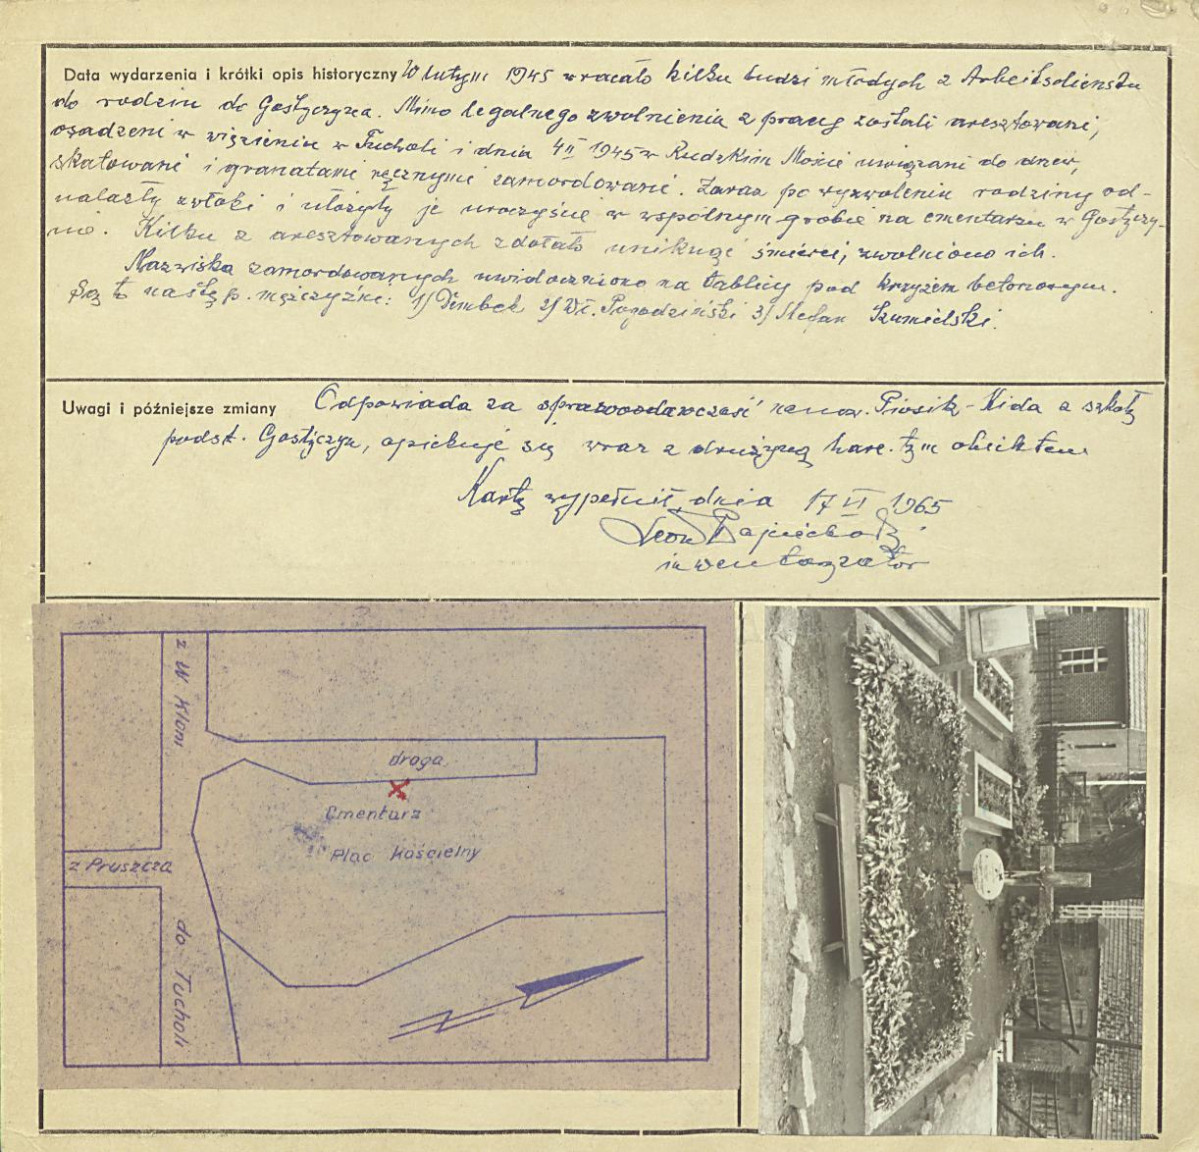 Data wydarzenia i krótki opis historyczny W lutym 1945 wracało kilku ludzi młodych z Arbeitsdienstu
do rodzin do Gostyczyna. Mimo legalnego zwolnienia z pracy zostali aresztowani,
osadzeni w więzieniu w Tucholi i dnia 4 II 1945 w Rudzkim Moście uwiązani do drzew,
skatowani i granatami ręcznymi zamordowani. Zaraz po wyzwoleniu rodziny od-
nalazły zwłoki i ułożyły je uroczyście w wspólnym grobie na cmentarzu w Gostyczy-
nie. Kilku z aresztowanych zdołało uniknąć śmierci, zwolniono ich.
Nazwiska zamordowanych uwidoczniono na tablicy pod krzyżem betonowym.
Są to nastę p. mężczyźni: 1) Dimbek 2) Wł. Pogodziński 3) Stefan Szumielski.
Uwagi i późniejsze zmiany Odpowiada za sprawozdawczość Piosik-Kida a szkoły
podst. Gostyczyn, opiekuje się wraz z drużyną harc. tym obiektem
Kartę wypełnił, dnia 17 VI 1965
Leon
inwentaryzator
z W. Kloni
droga
Cmentarz
Plac Kościelny
z Pruszcza
do Tucholi